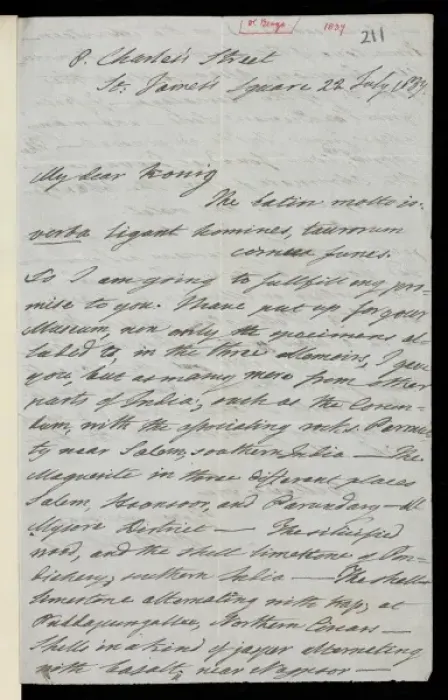 1837
211
8. Charles's Street
St: James's Square 22 July 1837.
My dear Konig
The Latin motto is.
verba ligant homines, taurorum
cornua funes.
So I am going to fullfill my pro-
mise to you. I have put up for your
Museum non only the specimens al-
luded to in the three Memoirs, I gave
you, but as many more from other
parts of India; such as the Corun-
dum, with the associating rocks.
ty near Salem, southern India — The
Magnesite in three different places
Salem, Hoonsoor, and — 
Mysore District — The silicified
wood, and the shell limestone of Pon-
dichery; southern India — The shell
limestone alternating with trap, at
Northern Circars —
Shells in a kind of jasper alternating
with basalt, near Nagpoor —